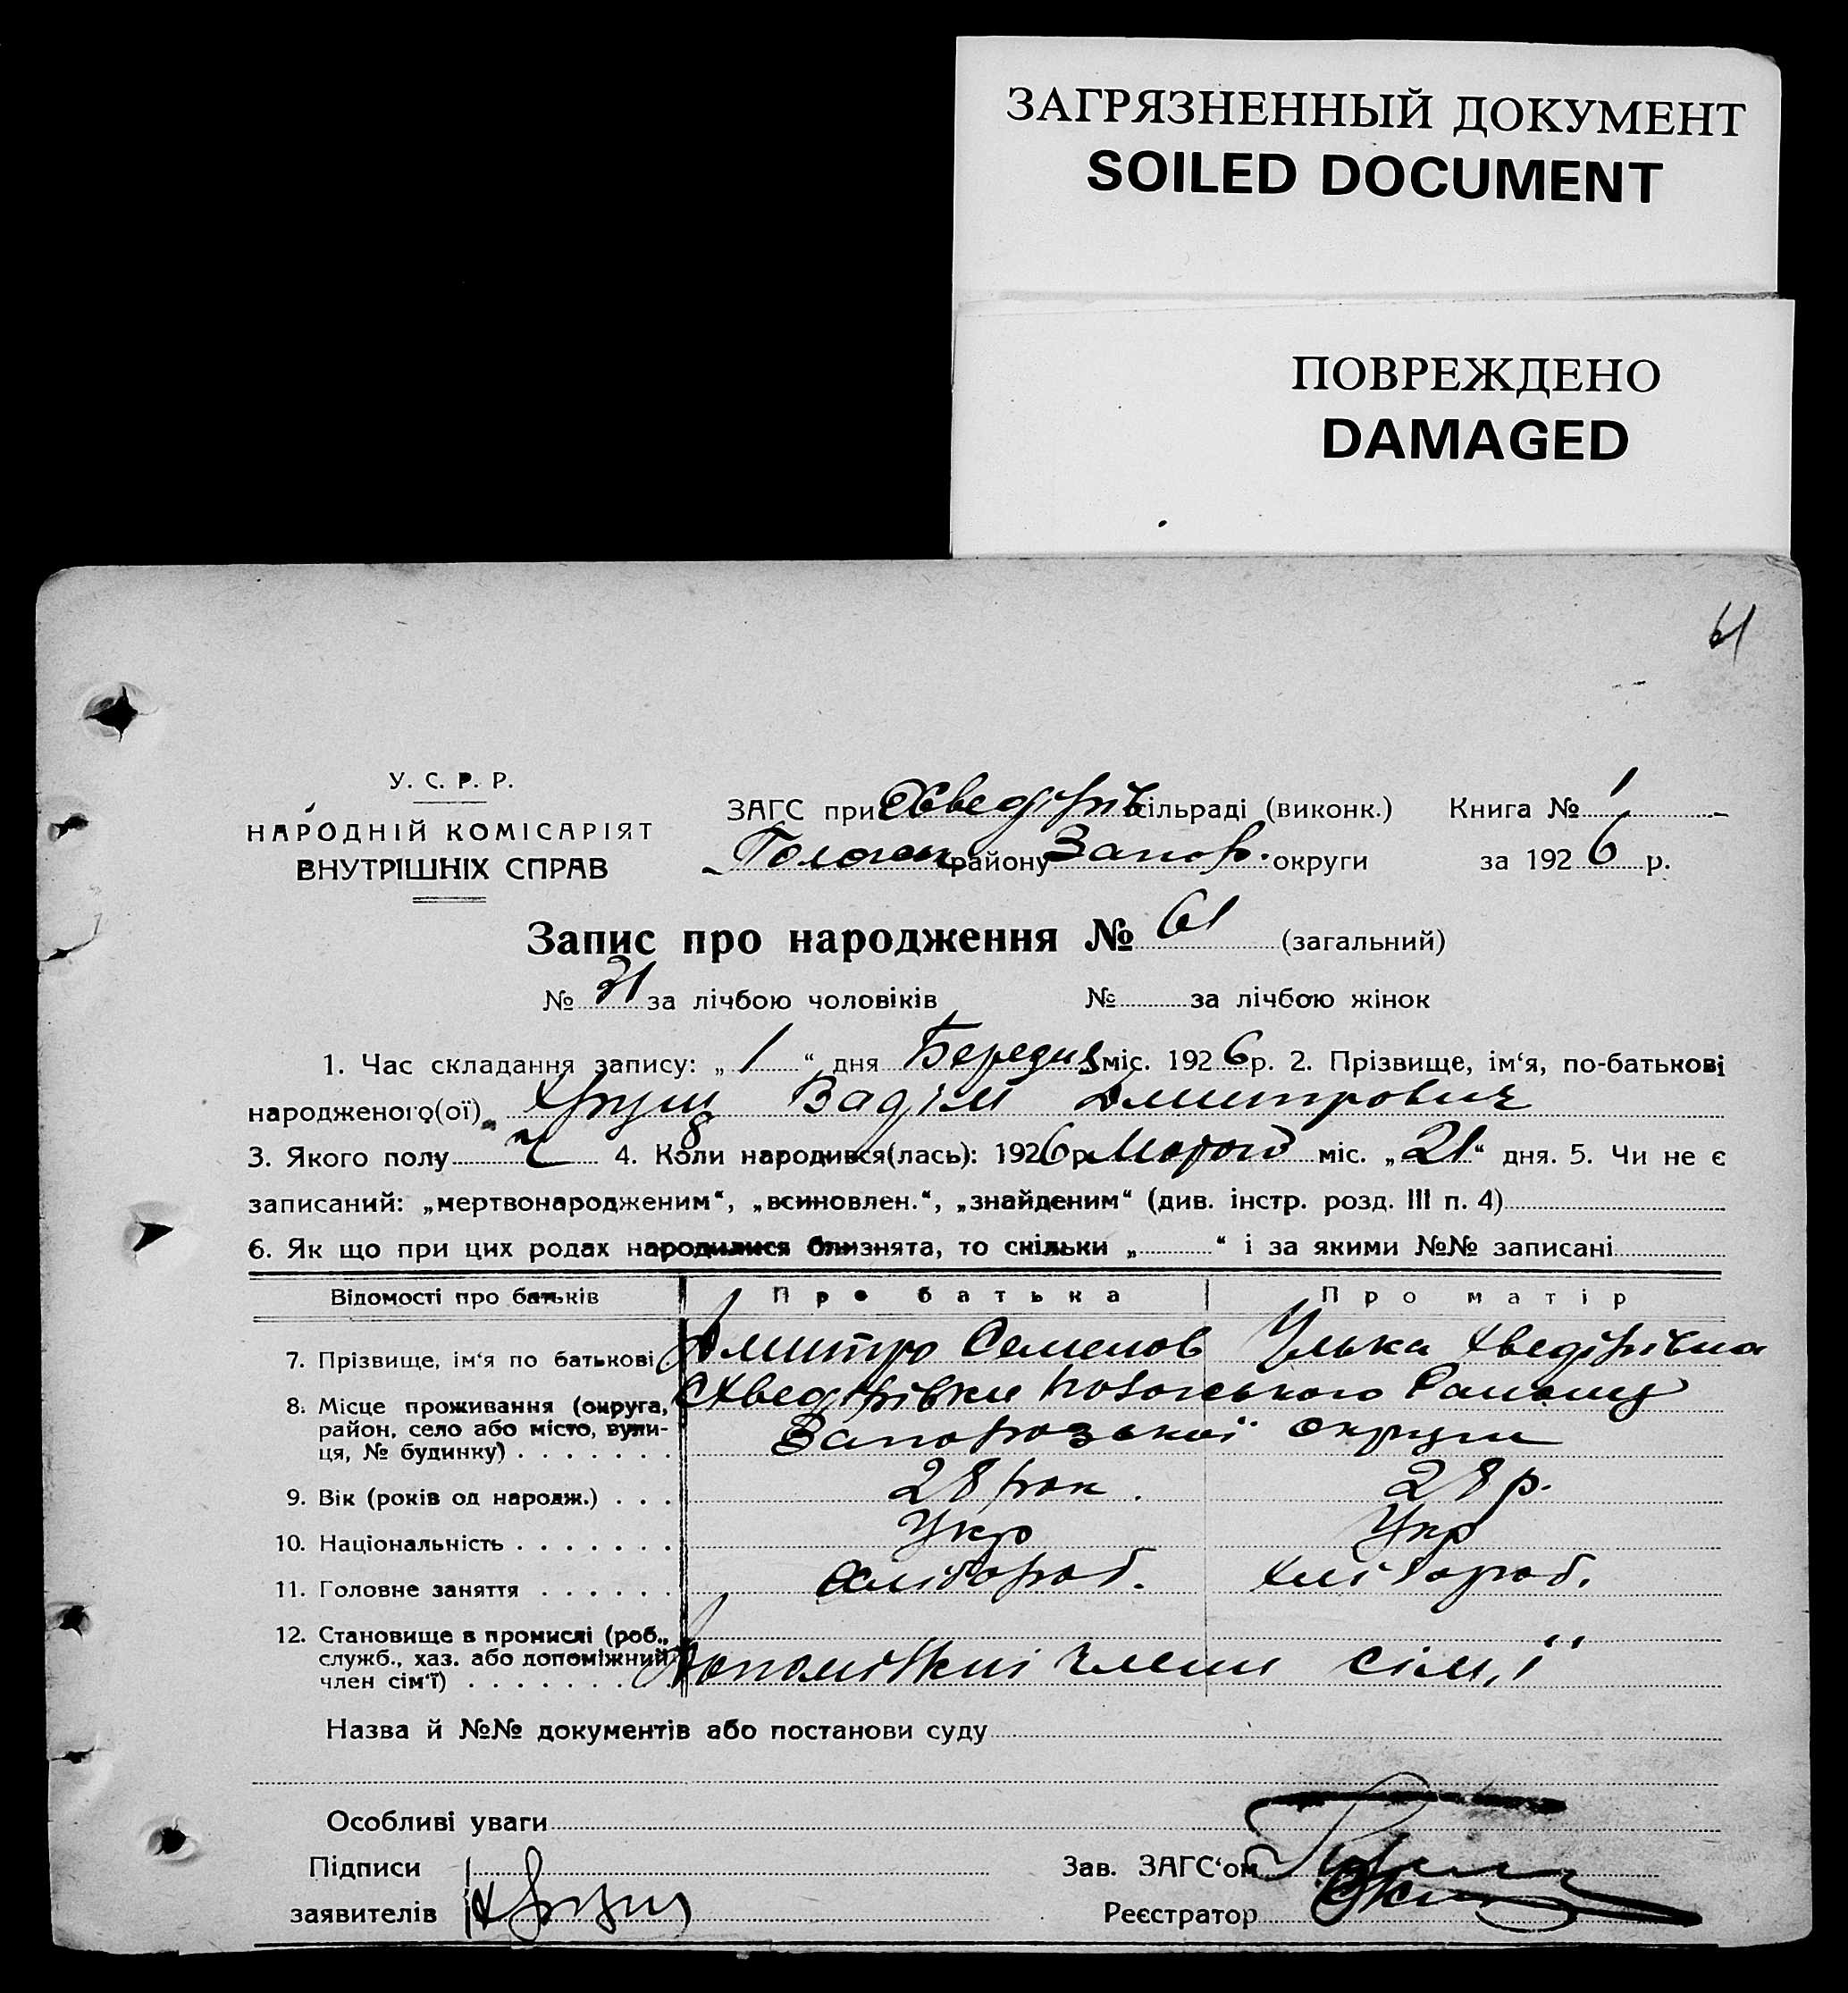 ЗАГРЯЗНЕННЫЙ ДОКУМЕНТ
SOILED DOCUMENT
ПОВРЕЖДЕНО
DAMAGED
61
У. С. Р. Р.
НАРОДНІЙ КОМІСАРІЯТ
ВНУТРІШНІХ СПРАВ
ЗАГС при Хведорів сільраді (виконк.) Книга № 1
району Запор. округи за 1926 р.
Запис про народження № 61 (загальний)
№ 31 за лічбою чоловіків № за лічбою жінок
1. Час складання запису: „1“ дня міс. 1926 р. 2. Прізвище, ім‘я, по-батькові
народженого(ої) Хрущ Вадім Дмитрович
3. Якого полу Ч 4. Коли народився(лась): 1926 р. Лютого міс. „21“ дня. 5. Чи не є
записаний: „мертвонародженим“, „всиновлен.“, „знайденим“ (див. інстр. розд. III п. 4)
6. Як що при цих родах народилися близнята, то скільки „ “ і за якими №№ записані
Відомості про батьків Про батька Про матір
7. Прізвище, ім‘я по батькові Дмитро Семенов Улька Хведорівна
8. Місце проживання (округа, Хведорівки району
район, село або місто, вули- Запорозської округи
ця, № будинку)
9. Вік (років од народж.) 28 рок. 28 р.
10. Національність Укр Укр
11. Головне заняття Хлібороб. Хлібороб.
12. Становище в промислі (роб.,
служб., хаз. або допоміжний Допоміжні члени сім,ї
член сім‘ї)
Назва й №№ документів або постанови суду
Особливі уваги
Підписи Зав. ЗАГС‘ом
заявителів Хрущ Реєстратор